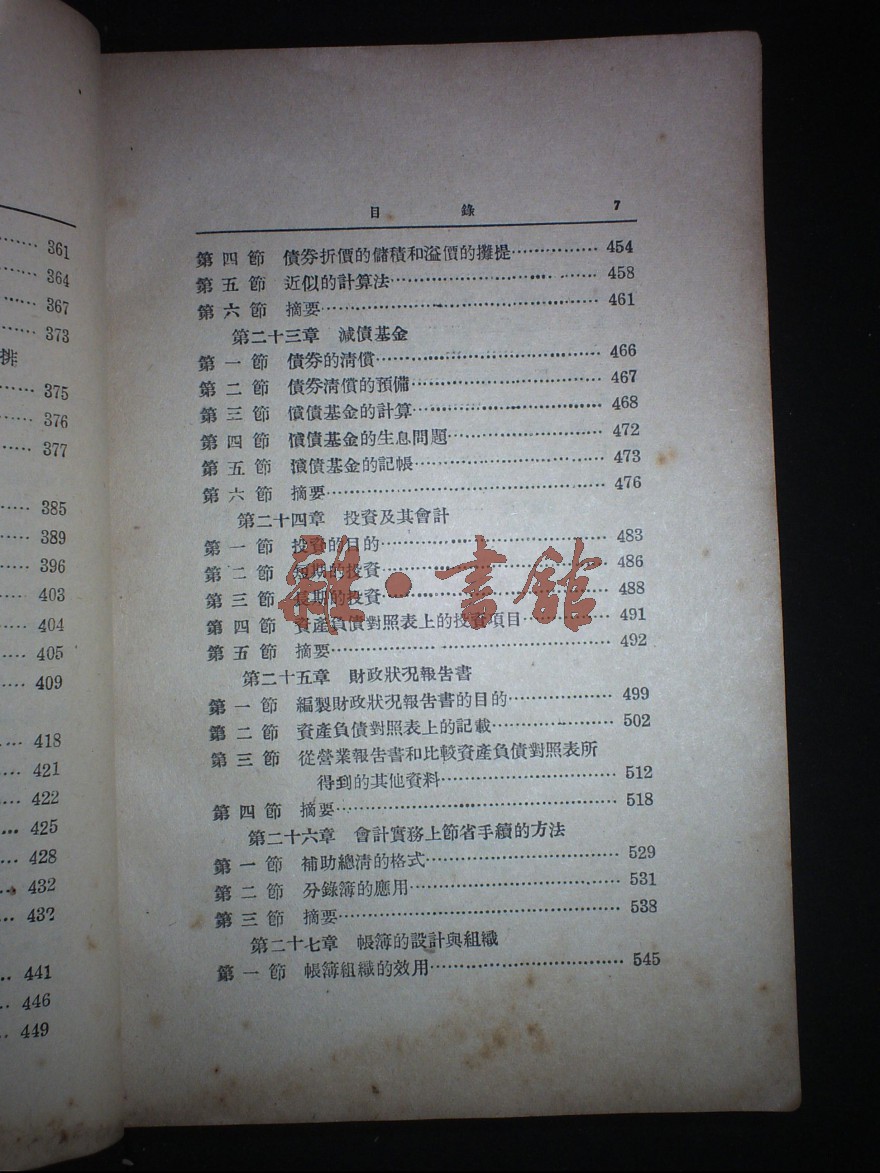 361
364
367
373
排
375
376
377
385
389
396
403
404
405
409
418
421
422
425
428
432
432
441
446
449
目 錄 7
第四節 債券折價的儲積和溢價的攤提 454
第五節 近似的計算法 458
第六節 摘要 461
第二十三章 減債基金
第一節 債券的淸償 466
第二節 債券淸償的預備 467
第三節 償債基金的計算 468
第四節 償債基金的生息問題 472
第五節 償債基金的記帳 473
第六節 摘要 476
第二十四章 投資及其會計
第一節 投資的目的 483
第二節 短期的投資 486
第三節 長期的投資 488
第四節 資產負債對照表上的投資項目 491
第五節 摘要 492
第二十五章 財政狀況報告書
第一節 編製財政狀況報告書的目的 499
第二節 資產負債對照表上的記載 502
第三節 從營業報告書和比較資產負債對照表所
得到的其他資料 512
第四節 摘要 518
第二十六章 會計實務上節省手續的方法
第一節 補助總淸的格式 529
第二節 分錄簿的應用 531
第三節 摘要 538
第二十七章 帳簿的設計與組織
第一節 帳簿組織的效用 545
雜·書館